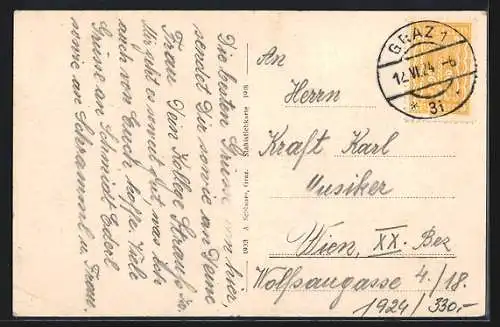 Die besten Grüsse von hier,
sendet Dir sowie an Deine
Frau Dein Kollege Straub
Mir geht es soweit gut, was ich
auch von Euch hoffe. Viele
Grüsse an Schmidt Ederl
sowie an Schrammel u. Frau.
1953 A. Schlauer, Graz. Stahlstichkarte 1918
GRAZ 1
12.VI.24-6
* 3i
An
Herrn
Kraft Karl
Musiker
Wien, XX. Bez
Wolfsaugasse 4./18.
1924/330,-